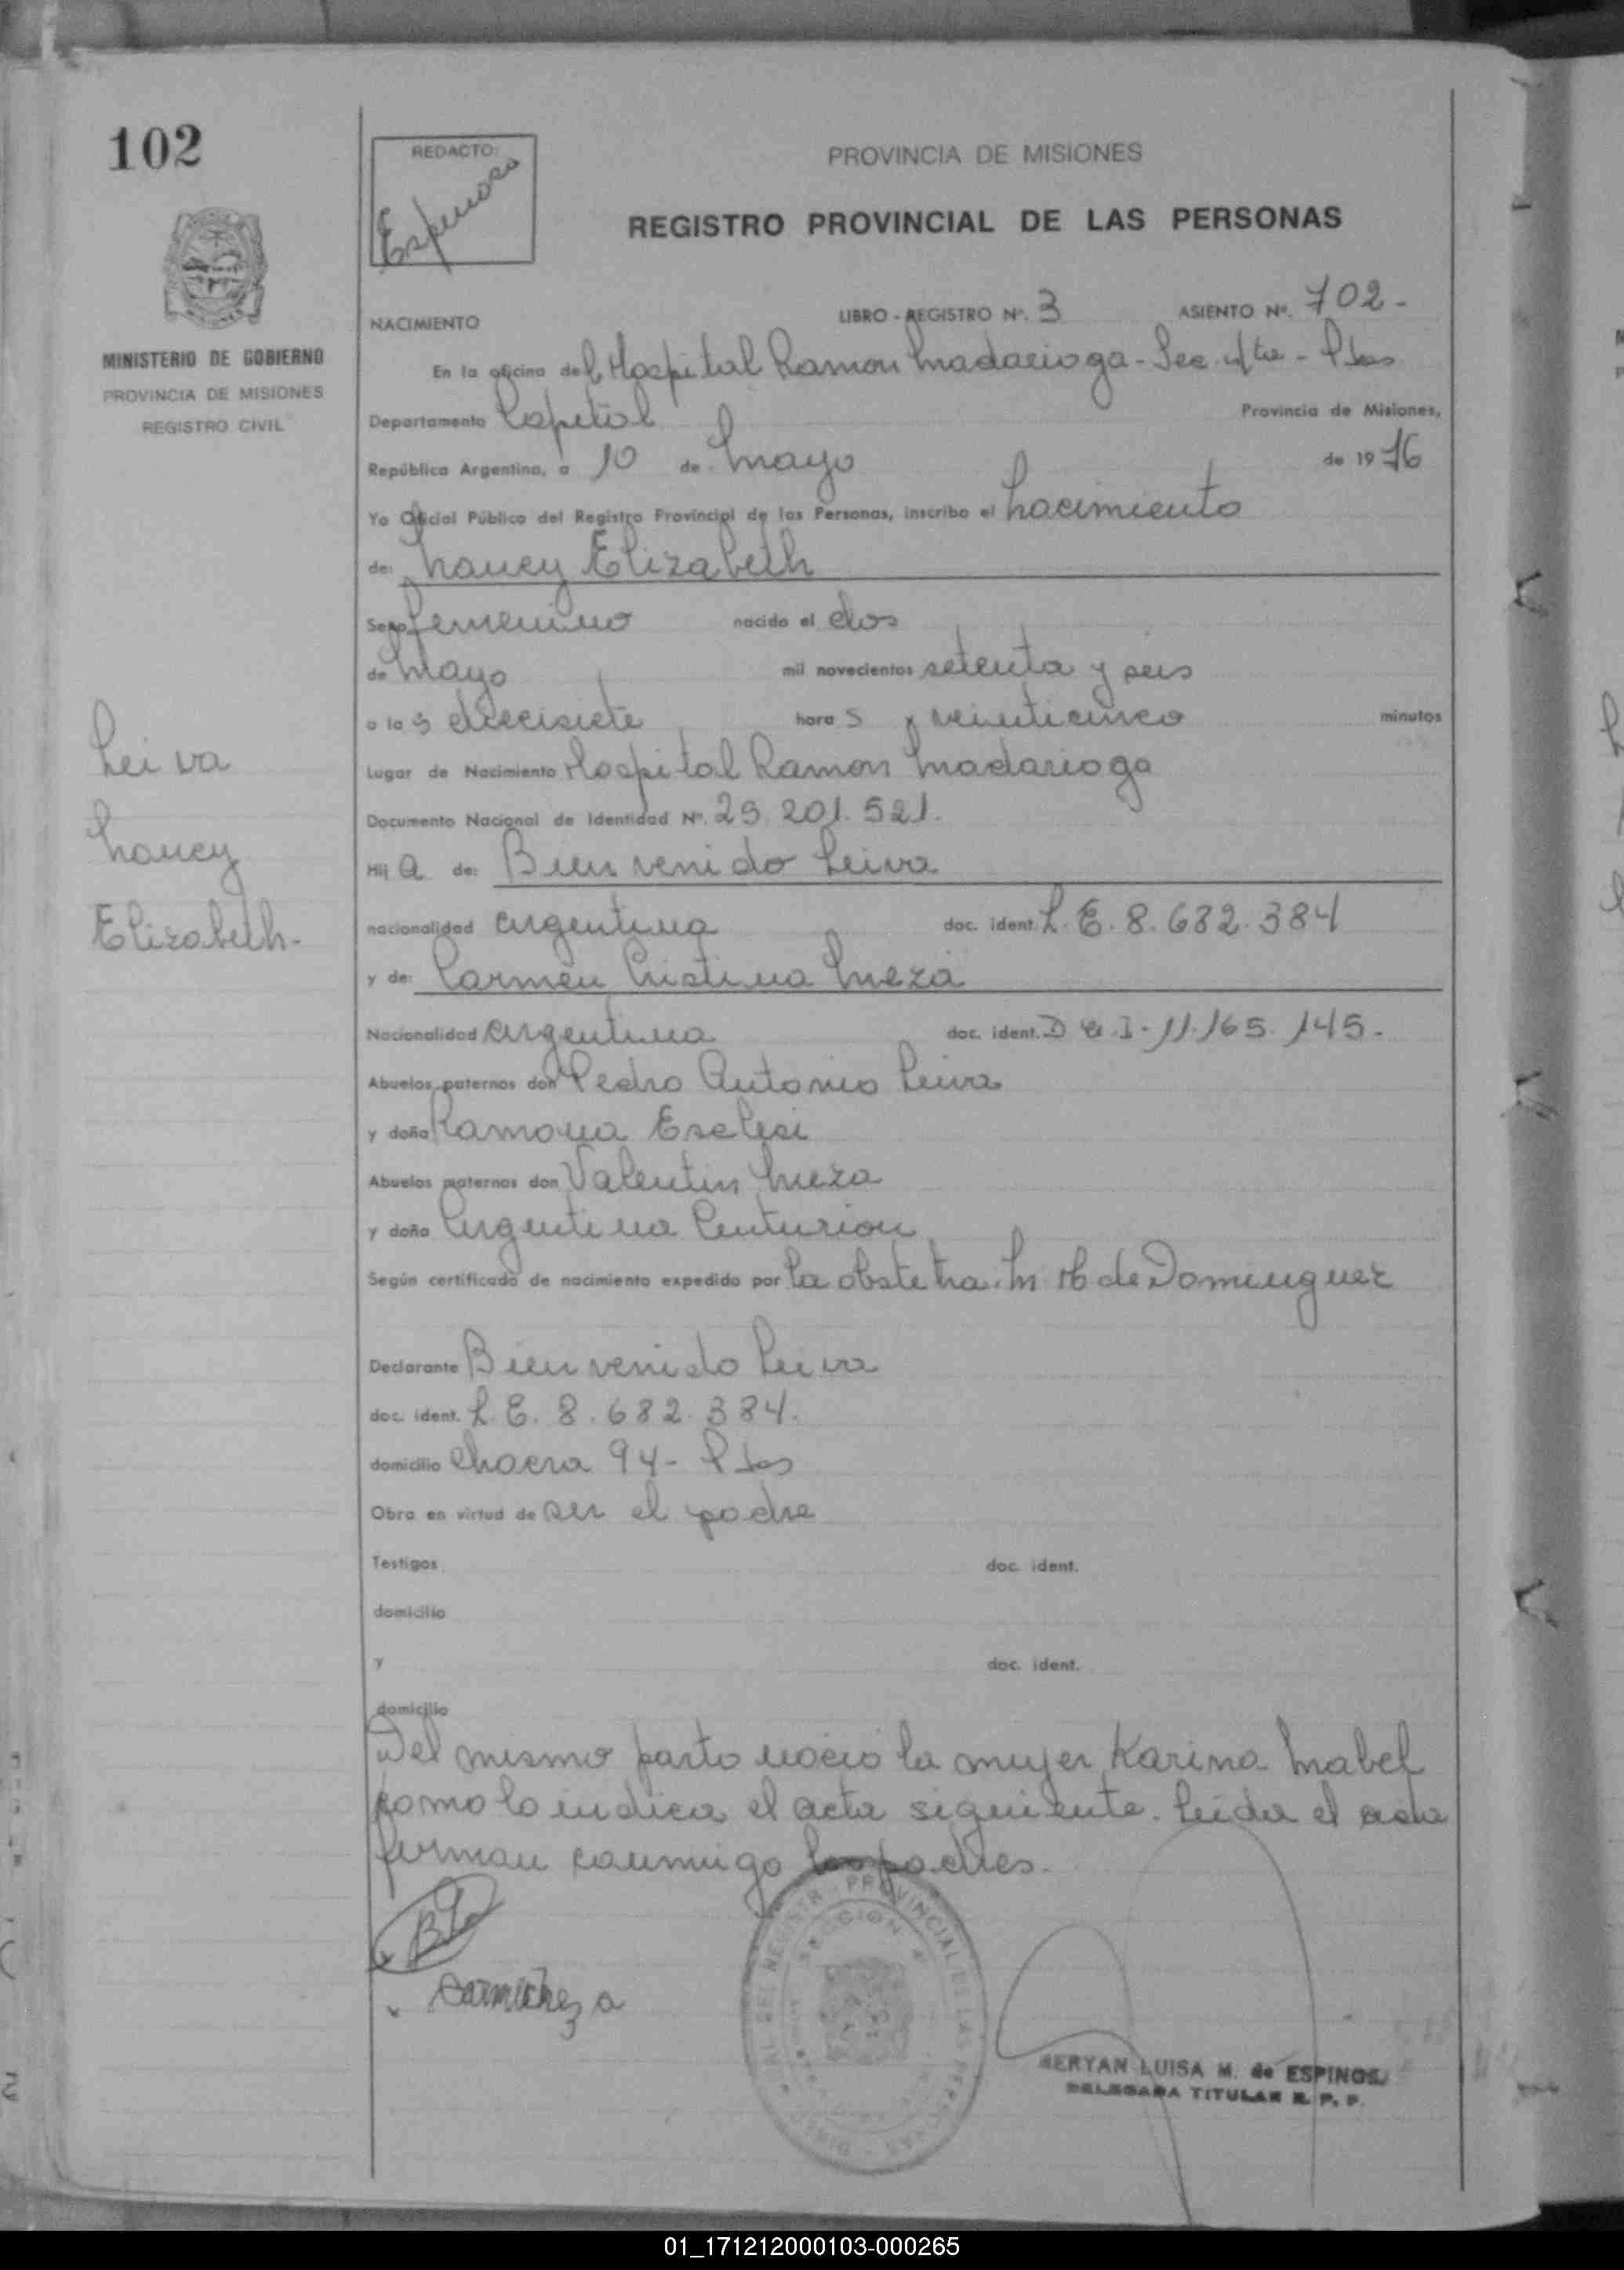 102
REDACTO:
Espinosa
PROVINCIA DE MISIONES
REGISTRO PROVINCIAL DE LAS PERSONAS
MINISTERIO DE GOBIERNO
PROVINCIA DE MISIONES
REGISTRO CIVIL
NACIMIENTO LIBRO - REGISTRO Nº. 3 ASIENTO Nº. 702-
En la oficina del Hospital Ramon Madariaga - Sec. 4ta - Pdas
Departamento Capital Provincia de Misiones,
República Argentina, a 10 de Mayo de 1976
Yo Oficial Público del Registro Provincial de las Personas, inscribo el Nacimiento
de: Nancy Elizabeth
Sexo femenino nacido el dos
de Mayo mil novecientos setenta y seis
a las diecisiete horas y veinticinco minutos
Lugar de Nacimiento Hospital Ramon Madariaga
Documento Nacional de Identidad Nº. 25.201.521.
Hija de: Bienvenido Leiva
nacionalidad argentina doc. ident. L.E. 8.682.384
y de: Carmen Cristina Meza
Nacionalidad argentina doc. ident. D N I - 11.165.145.-
Abuelos paternos don Pedro Antonio Leiva
y doña Ramona
Abuelos maternos don Valentin Meza
y doña Argentina Centurion
Según certificado de nacimiento expedido por la obstetra. M. H de Dominguez
Declarante Bienvenido Leiva
doc. ident. L.E. 8.682.384.
domicilio Chacra 94- Pdas
Obra en virtud de ser el padre
Testigos doc. ident.
domicilio
y doc. ident.
domicilio
Del mismo parto nacio la mujer Karina Mabel
como lo indica el acta siguiente. Leida el acta
firman conmigo los padres.
Leiva
Nancy
Elizabeth-
REGISTR. PROVINCIAL DE LAS PERSONAS
SECCION 4
LUISA M. de ESPINOSA
DELEGADA TITULAR R. P. P.
01_171212000103-000265